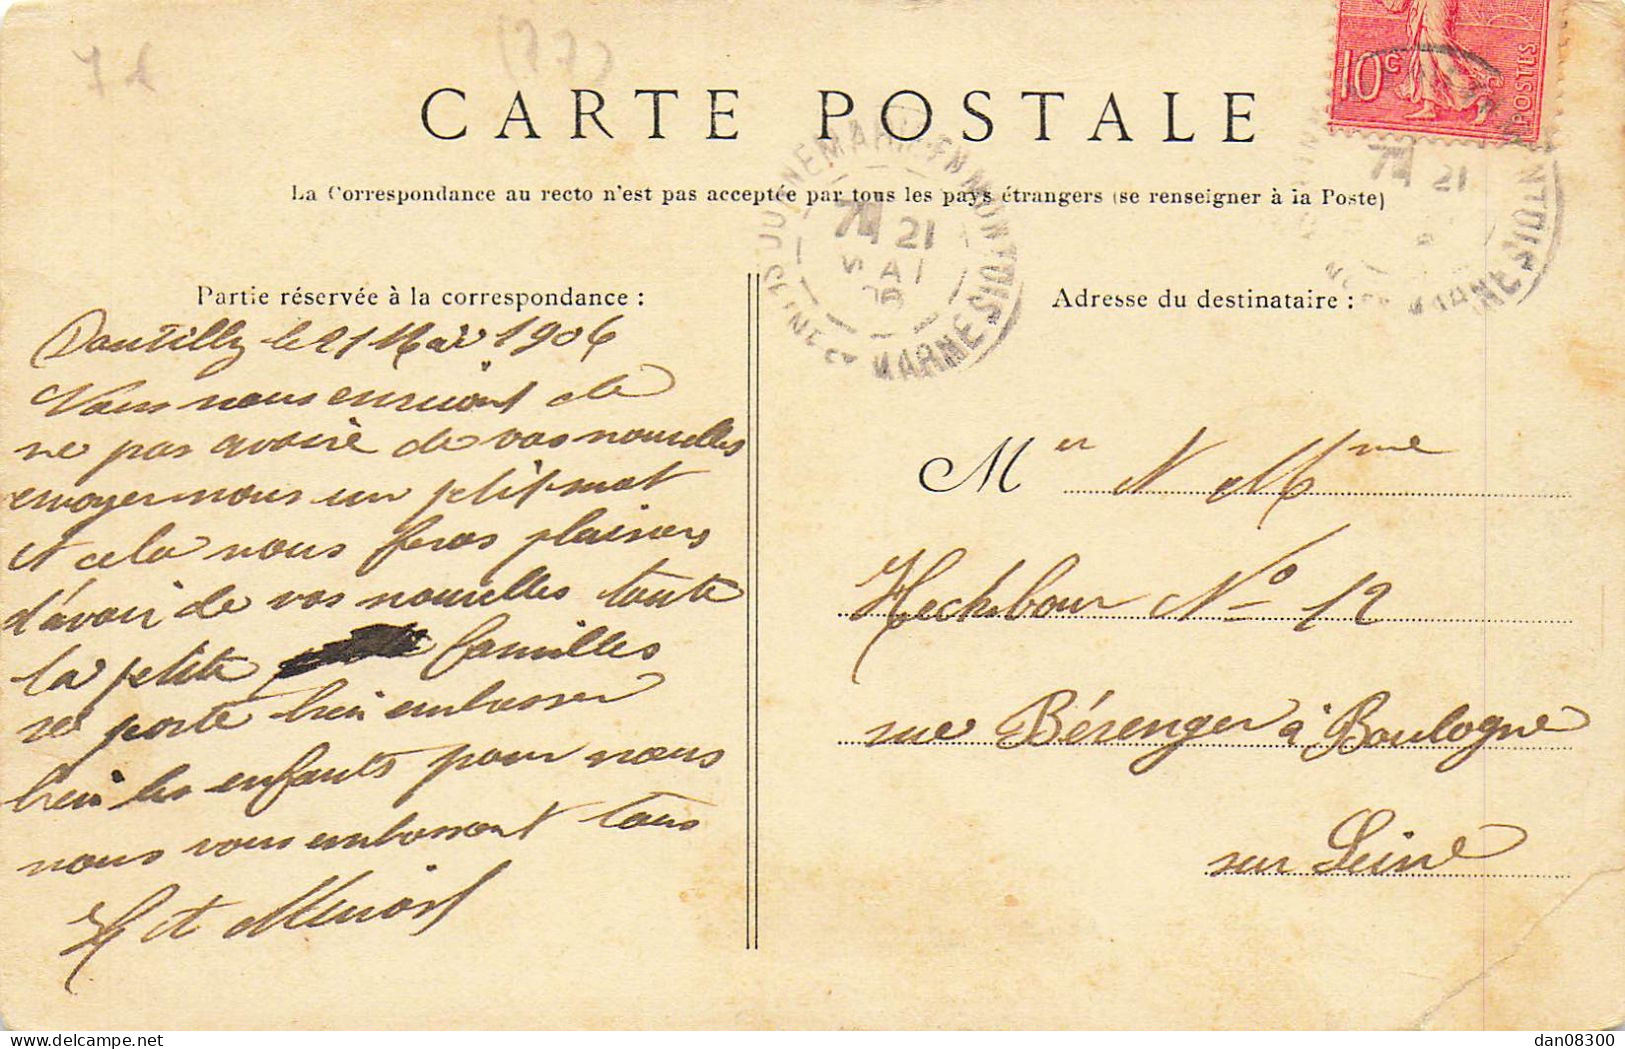 7 f
(77)
CARTE POSTALE
La Correspondance au recto n'est pas acceptée par tous les pays étrangers (se renseigner à la Poste)
10c POSTES
JUINEMARIE-EN-MONTOIS
SEINE ET MARNE
7 21
MAI
06
7 21
MARNE
Partie réservée à la correspondance :
Dontilly le 21 Mai 1906
Vous nous ennuiont de
ne pas avoire de vos nouvelles
envoyer nous un petit mot
et cela nous feras plaisirs
d'avoir de vos nouvelles toute
la petite familles
se porte bien embrasser
bien les enfants pour nous
nous vous embrassont tous
H et
Adresse du destinataire :
Mer et Mme
Hechbour No 12
rue Bérenger à Boulogne
sur Seine
dan08300